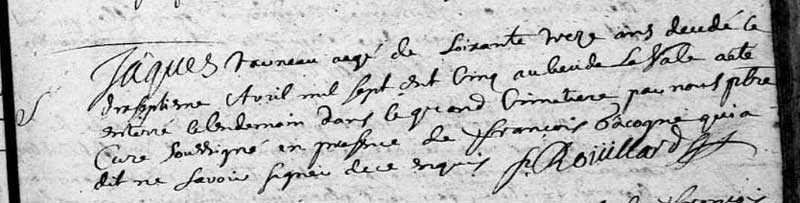 Jâques Trumeau aagé de Soixante treze ans decedé le
dixseptieme Avril mil sept cent Cinq au lieu de La Vale a été
enterré le lendemain dans le grand Cimetiere par nous pbre
Curé Soussigné en presence de françois Bacogne qui a
dit ne Scavoir signer de ce enquis f. Roüillard